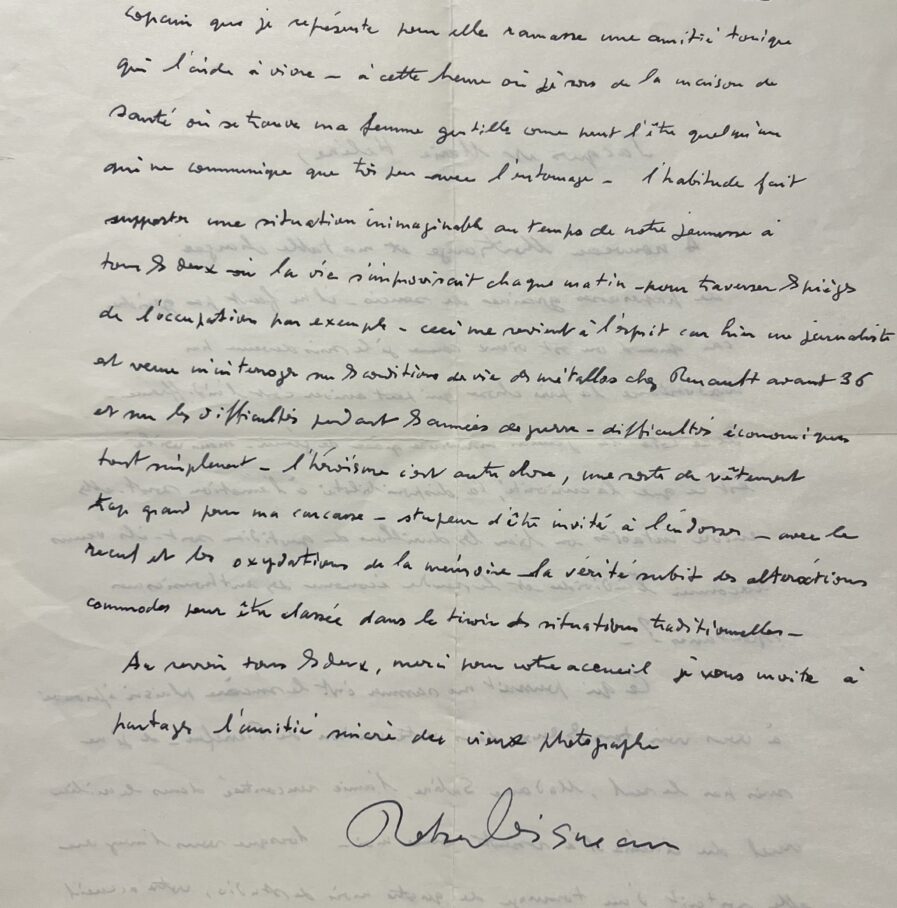 copain que je représente pour elle ramasse une amitié tonique
qui l'aide à vivre – à cette heure où je sors de la maison de
santé où se trouve ma femme gentille come peut l'être quelqu'un
qui ne communique que très peu avec l'entourage – l'habitude fait
supporter une situation inimaginable au temps de notre jeunesse à
tous les deux – où la vie s'improvisait chaque matin – pour traverser les pièges
de l'occupation par exemple – ceci me revient à l'esprit car hier un journaliste
est venu m'interroger sur les conditions de vie des métallos chez Renault avant 36
et sur les difficultés pendant les années de guerre – difficultés économiques
tout simplement – l'héroïsme c'est autre chose, une sorte de vêtement
trop grand pour ma carcasse – stupeur d'être invité à l'endosser – avec le
recul et les oxydations de la mémoire – la vérité subit des altérations
commodes pour être classée dans le tiroir des situations traditionnelles –
Au revoir tous les deux, merci pour votre accueil je vous invite à
partager l'amitié sincère du vieux photographe
Robert Doisneau